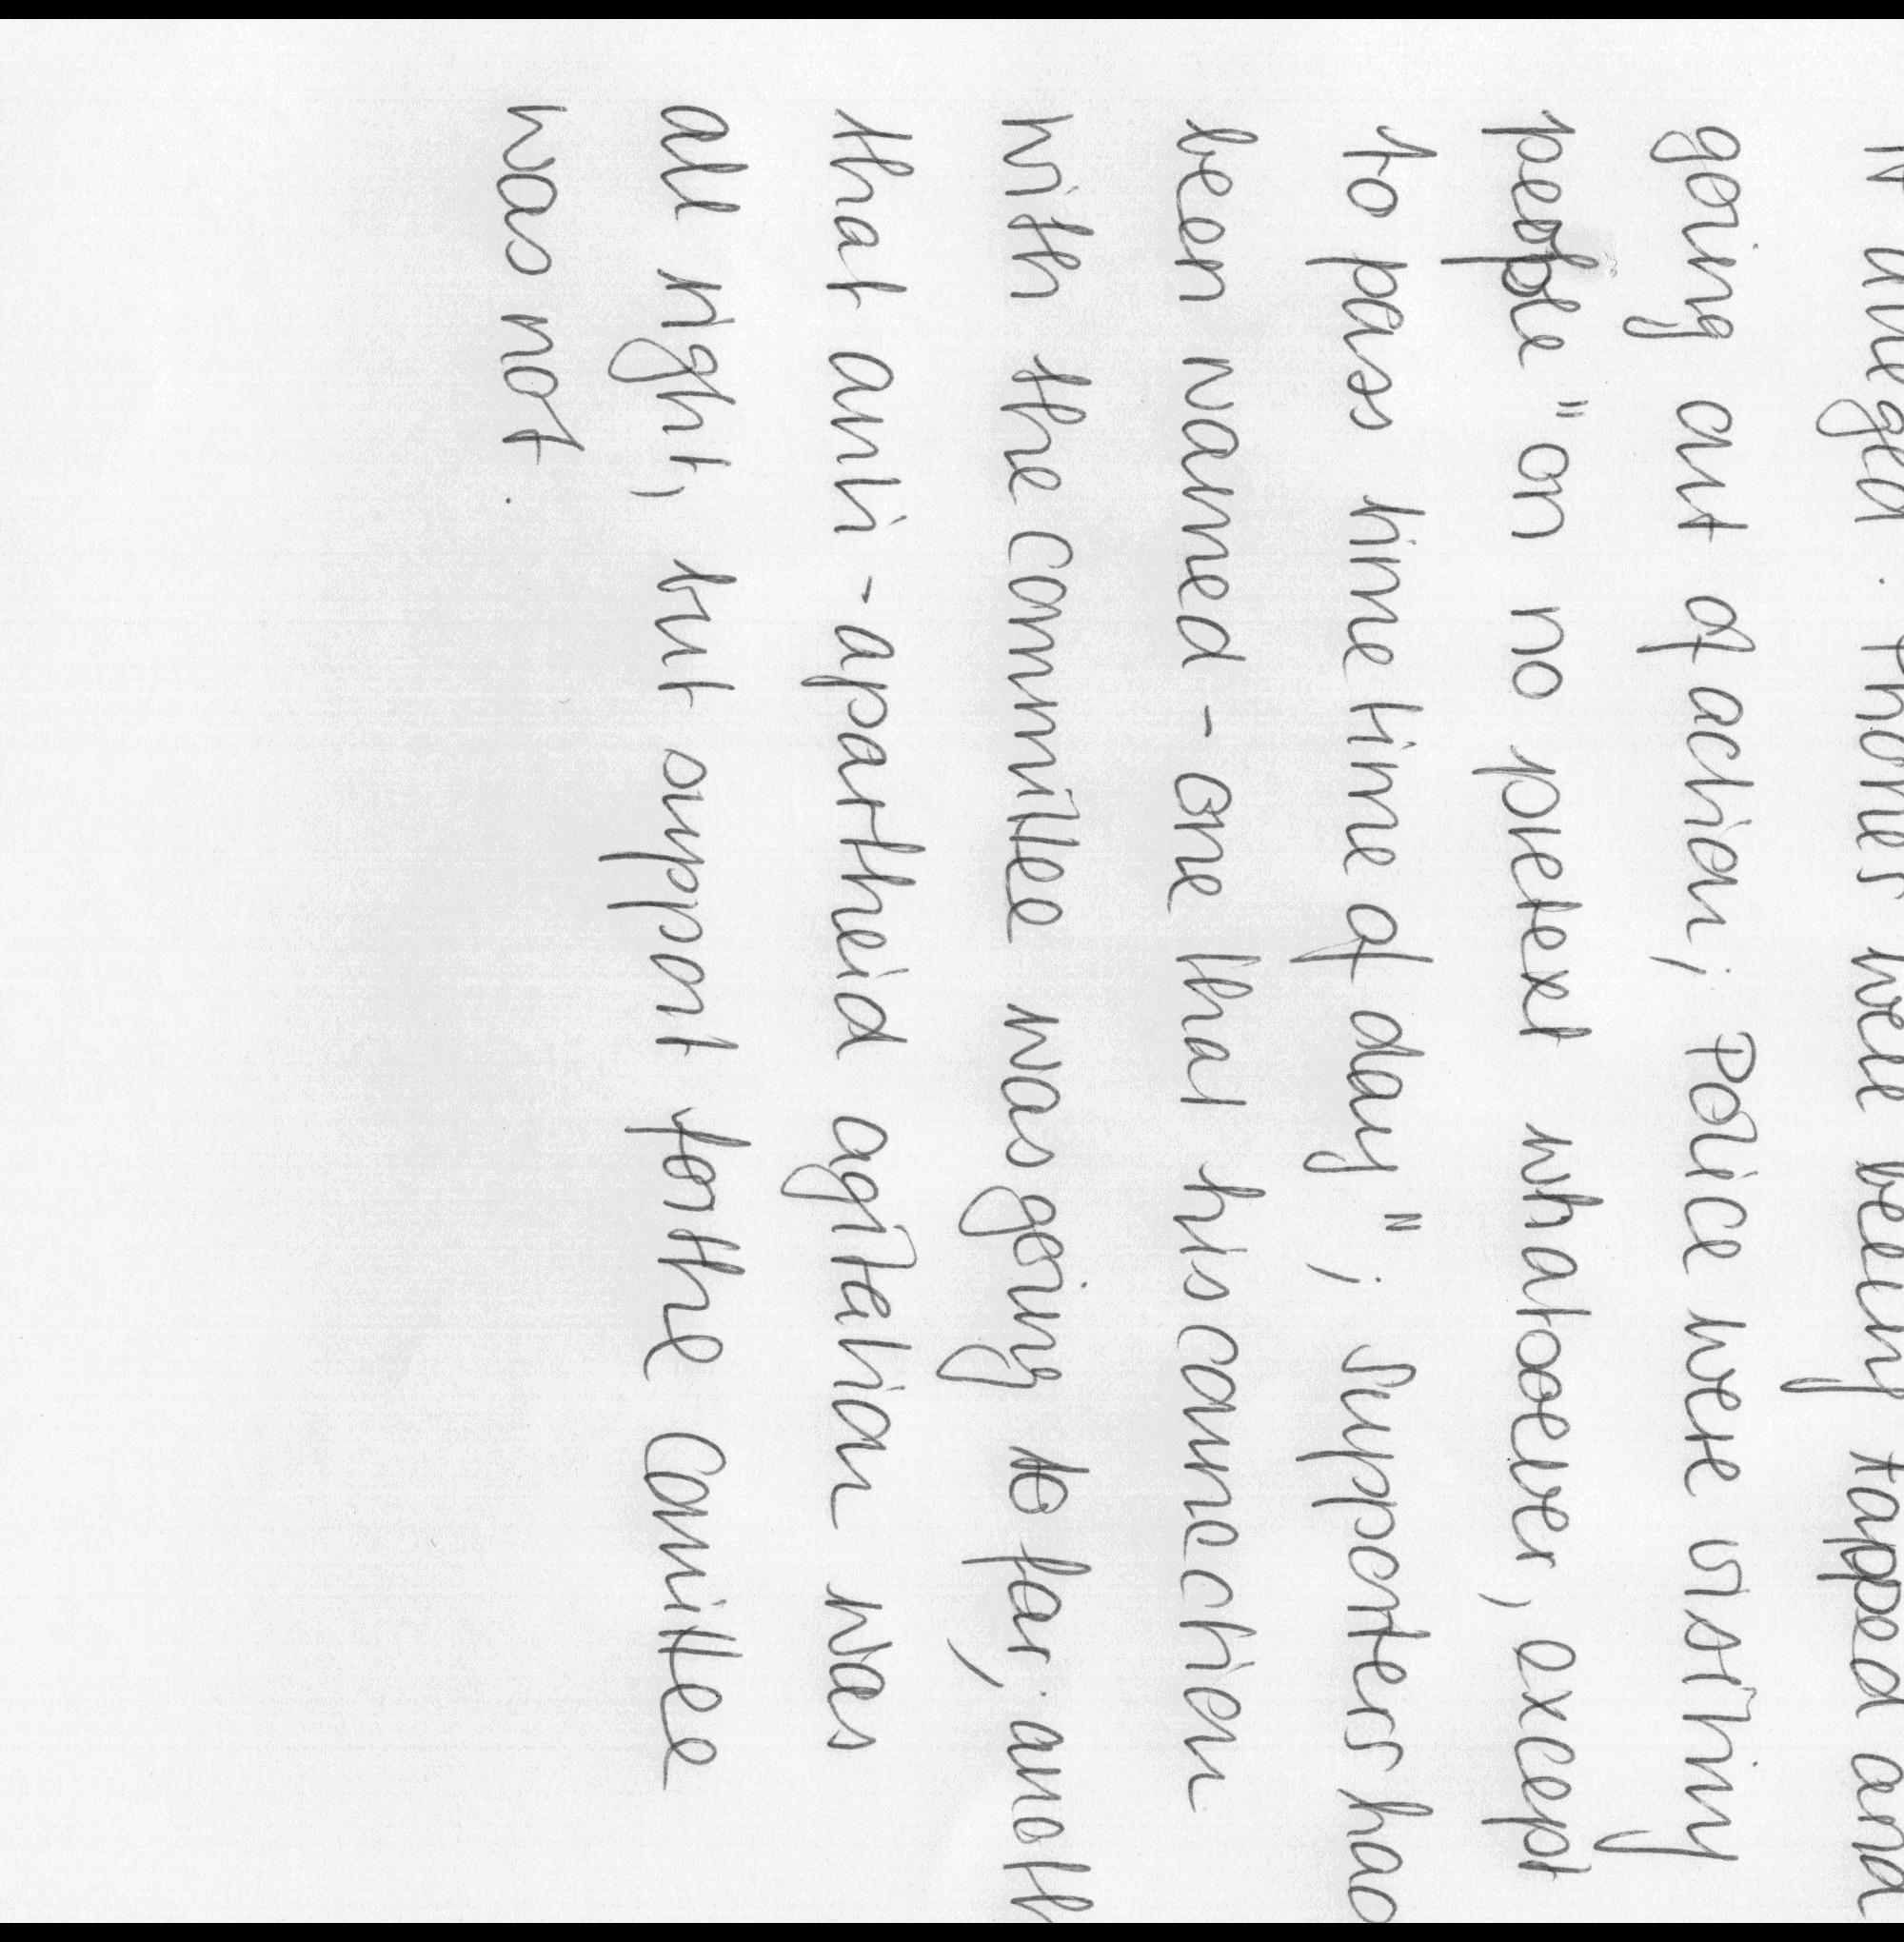 It alleged. Phones were being tapped and
going out of action; Police were visiting
people "on no pretext whatoever, except
to pass time time of day"; Supporters had
been warned - one that his connection
with the committee was going to far; anoth
that anti-apartheid agitation was
all right, but support for the Comittee
was not.